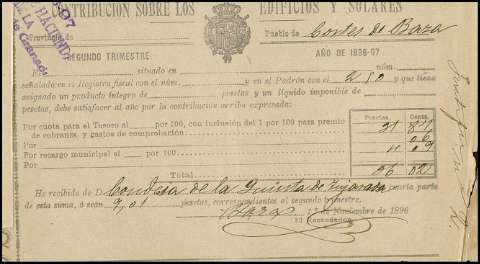 CONTRIBUCIÓN SOBRE LOS EDIFICIOS Y SOLARES
HACIENDA
DE LA
Provincia de Pueblo de Cortes de Baza
SEGUNDO TRIMESTRE AÑO DE 1896-97
El situado en
señalado en el Registro fiscal con el núm. y en el Padrón con el 210 y que tiene
asignado un producto íntegro de pesetas y un líquido imponible de
pesetas, debe satisfacer al año por la contribución arriba expresada:
Pesetas. Cents.
Por cuota para el Tesoro al por 100, con inclusión del 1 por 100 para premio
de cobranza y gastos de comprobación
Por recargo municipal al por 100 4 09
Total
He recibido de D. Condesa de la Quinta de cuarta parte
de esta suma, ó sean 9,01 pesetas, correspondientes al segundo trimestre.
Baza de Noviembre de 1896
El Recaudador